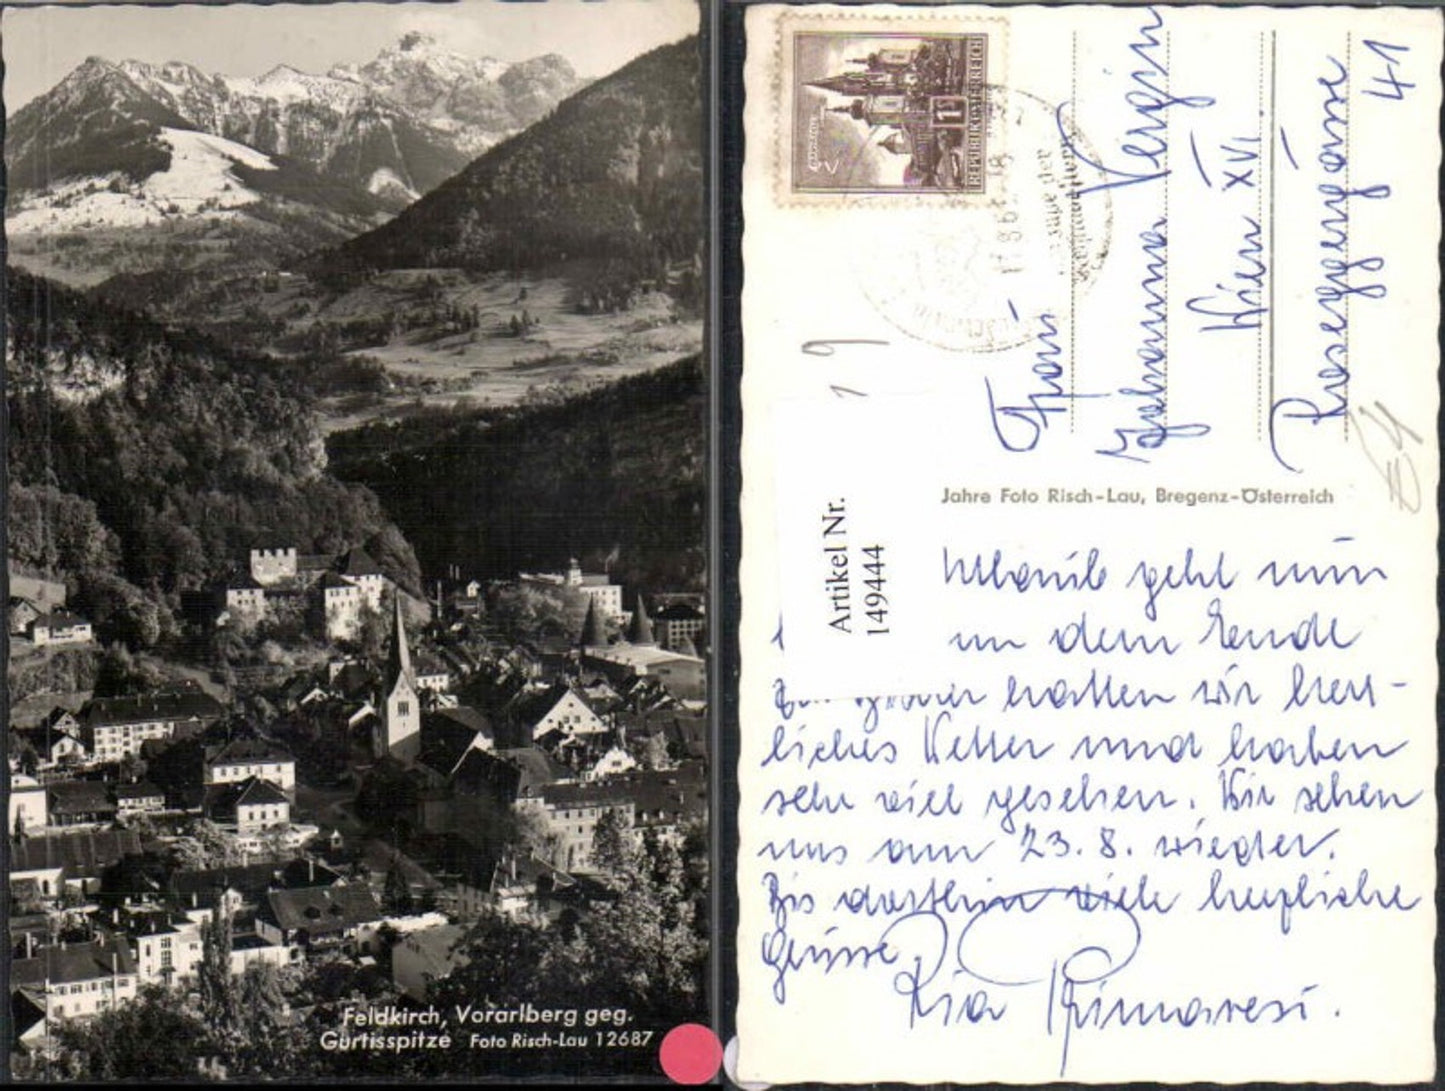 Feldkirch, Vorarlberg geg.
Gurtisspitze Foto Risch-Lau 12687
REPUBLIK ÖSTERREICH
1
Frau
Johanna Vergin
Wien XVI
Presserggasse 41
Artikel Nr.
149444
Jahre Foto Risch-Lau, Bregenz-Österreich
Urlaub geht nun
dem Ende
zu. hatten wir herr-
liches Wetter und haben
sehr viel gesehen. Wir sehen
uns am 23. 8. wieder.
Bis dorthin viele herzliche
Grüsse
Ria